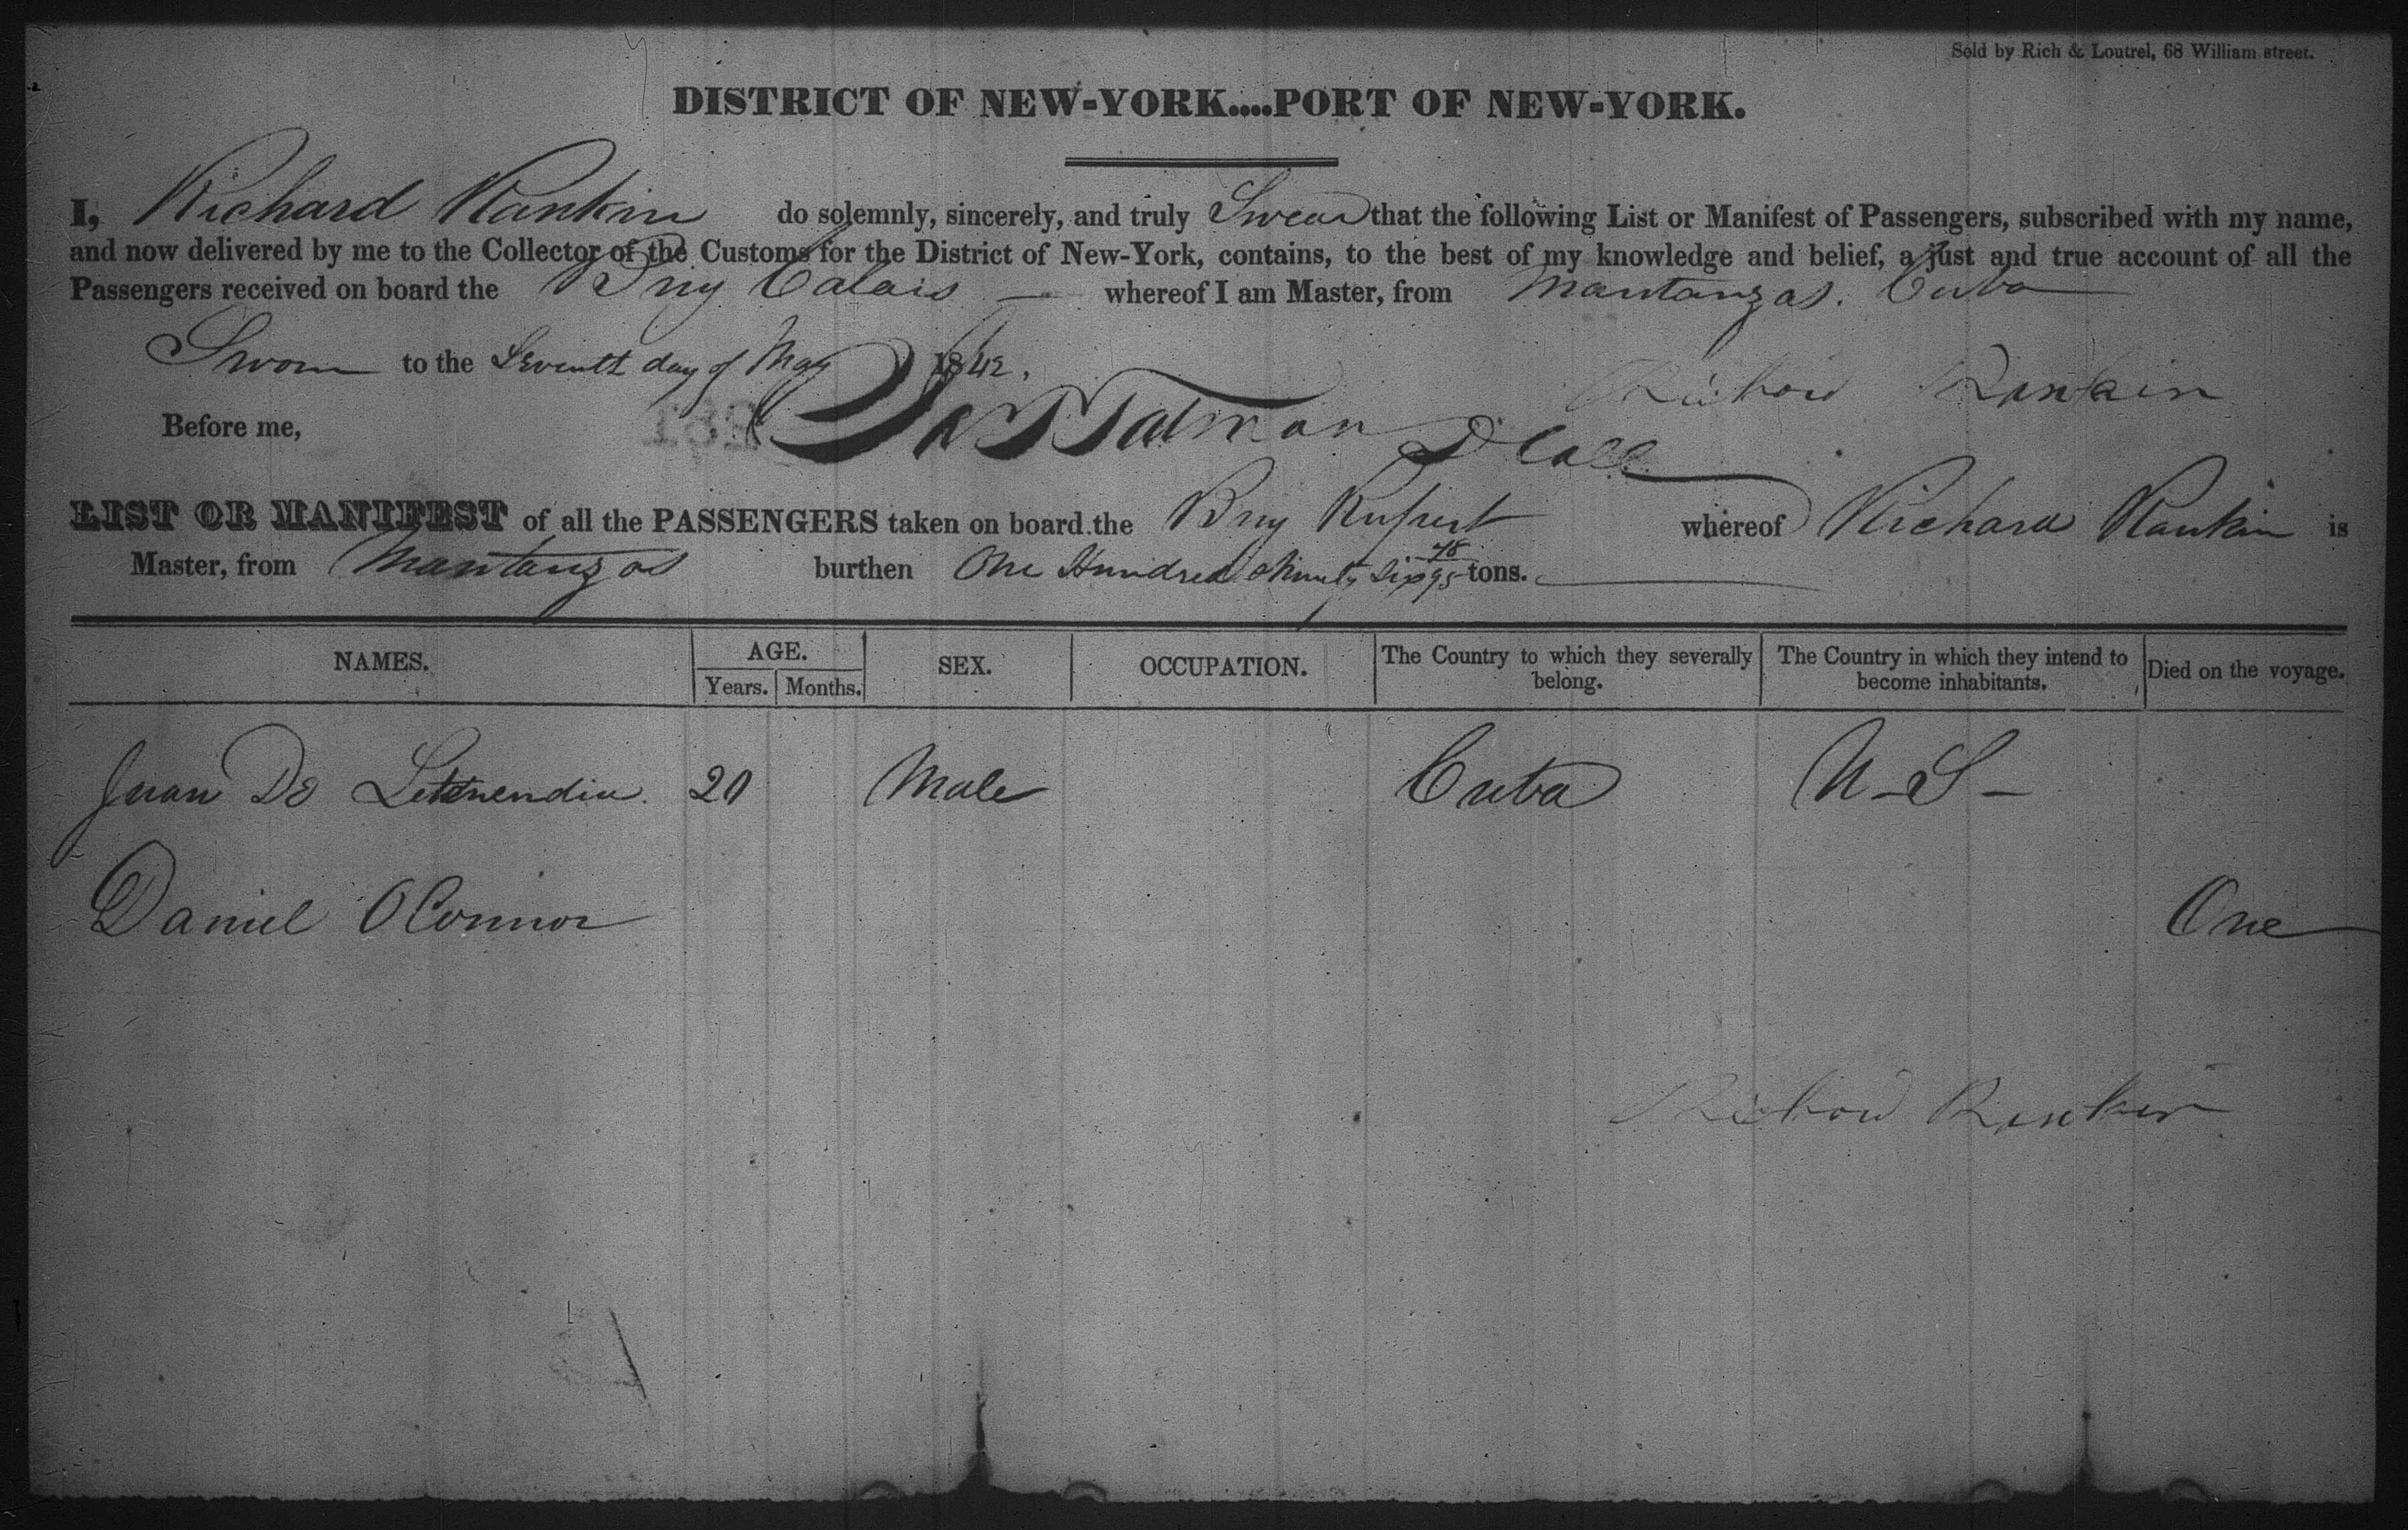 Sold by Rich & Loutrel, 68 William street.
DISTRICT OF NEW-YORK....PORT OF NEW-YORK.
I, Richard Rankin do solemnly, sincerely, and truly Swear that the following List or Manifest of Passengers, subscribed with my name,
and now delivered by me to the Collector of the Customs for the District of New-York, contains, to the best of my knowledge and belief, a just and true account of all the
Passengers received on board the Brig Calais whereof I am Master, from Mantanzas. Cuba
Sworn to the Seventh day of May 1842.
Richard Rankin
Before me, Talman D Coll
LIST OR MANIFEST of all the PASSENGERS taken on board the Brig whereof Richard Rankin is
Master, from Mantanzas burthen One Hundred Ninety Six 48/95 tons.
NAMES. AGE. SEX. OCCUPATION. The Country to which they severally belong. The Country in which they intend to become inhabitants. Died on the voyage.
Years. Months.
Juan De 20 Male Cuba U-S-
Daniel OConnor One
Richard Rankin